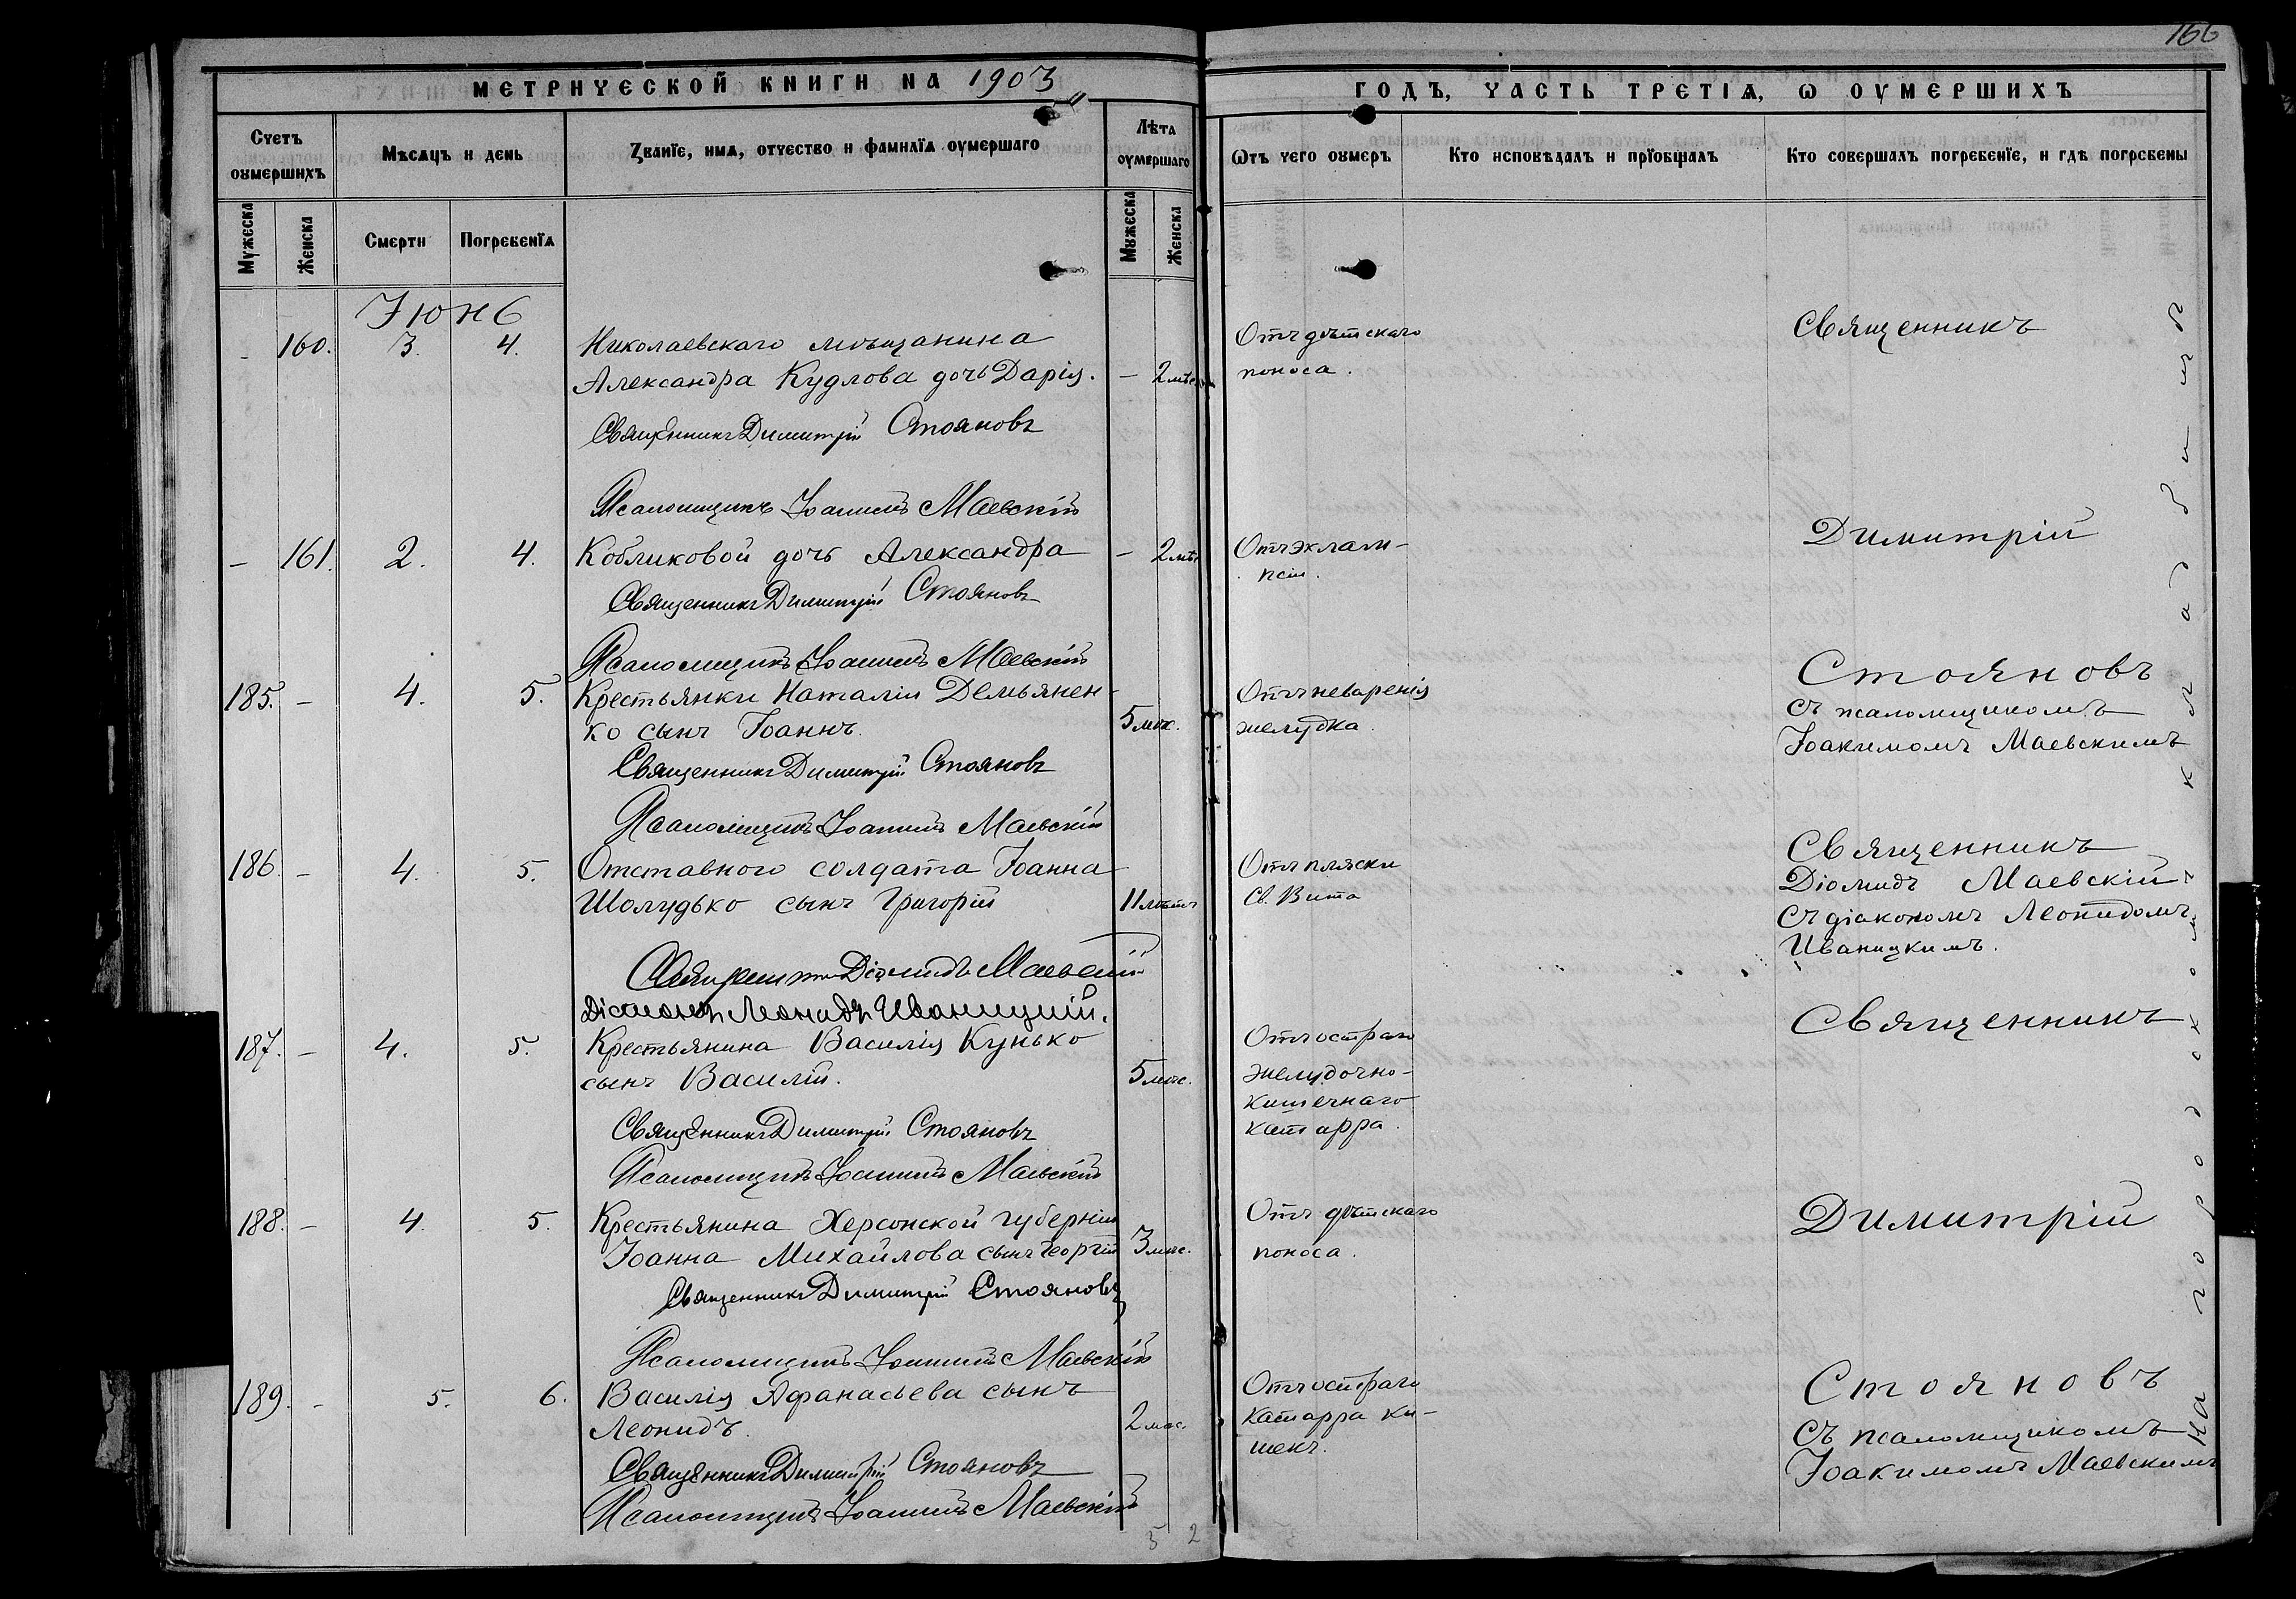 166
МЕТРИЧЕСКОЙ КНИГИ НА 1903
ГОДЪ, ЧАСТЬ ТРЕТІЯ, Ѡ ОУМЕРШИХЪ
Счетъ оумершихъ
Мѣсяцъ и день
Званїе, имя, отчество и фамилїя оумершаго
Лѣта оумершаго
Ѿтъ чего оумеръ
Кто исповѣдалъ и прїобщалъ
Кто совершалъ погребенїе, и гдѣ погребены
Мужеска
Женска
Смерти
Погребенїя
Мужеска
Женска
Іюнь
- 160. 3. 4. Николаевскаго мѣщанина
Александра Кудлова дочь Дарія. - 2 мѣс.
Отъ дѣтскаго
поноса.
Священникъ Димитрій Стояновъ
Псаломщикъ Іоакимъ Маевскій
- 161. 2. 4. Кобликовой дочь Александра - 2 мѣс.
Отъ эклам-
псіи.
Священникъ Димитрій Стояновъ
Псаломщикъ Іоакимъ Маевскій
185. - 4. 5. Крестьянки Наталіи Демьянен-
ко сынъ Іоаннъ. 5 мѣс.
Отъ неваренія
желудка.
Священникъ Димитрій Стояновъ
Псаломщикъ Іоакимъ Маевскій
Священникъ
Димитрій
Стояновъ
съ псаломщикомъ
Іоакимомъ Маевскимъ
186. - 4. 5. Отставного солдата Іоанна
Шолудько сынъ Григорій 11 лѣтъ
Отъ пляски
Св. Вита
Священникъ Діомидъ Маевскій
Діаконъ Леонидъ Иваницкій.
Священникъ
Діомидъ Маевскій
съ діакономъ Леонидомъ
Иваницкимъ.
187. - 4. 5. Крестьянина Василія Кунько
сынъ Василій. 5 мѣс.
Отъ остраго
желудочно-
кишечнаго
катарра.
Священникъ Димитрій Стояновъ
Псаломщикъ Іоакимъ Маевскій
188. - 4. 5. Крестьянина Херсонской губерніи
Іоанна Михайлова сынъ Георгій 3 мѣс.
Отъ дѣтскаго
поноса.
Священникъ Димитрій Стояновъ
Псаломщикъ Іоакимъ Маевскій
189. - 5. 6. Василія Афанасьева сынъ
Леонидъ. 2 мѣс.
Отъ остраго
катарра ки-
шекъ.
Священникъ Димитрій Стояновъ
Псаломщикъ Іоакимъ Маевскій
Священникъ
Димитрій
Стояновъ
съ псаломщикомъ
Іоакимомъ Маевскимъ
На городскомъ кладбищѣ
5 2